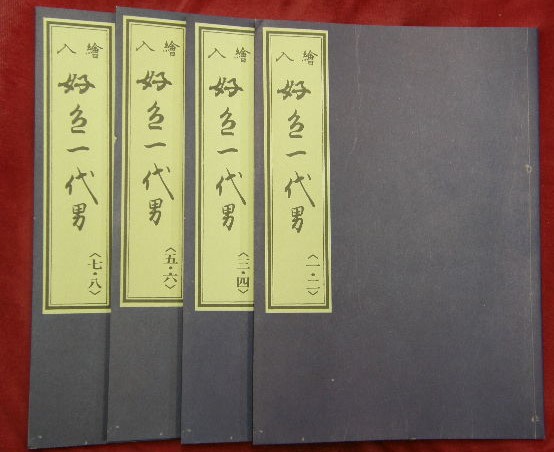 繪入
好色一代男
〈一・二〉
繪入
好色一代男
〈三・四〉
繪入
好色一代男
〈五・六〉
繪入
好色一代男
〈七・八〉